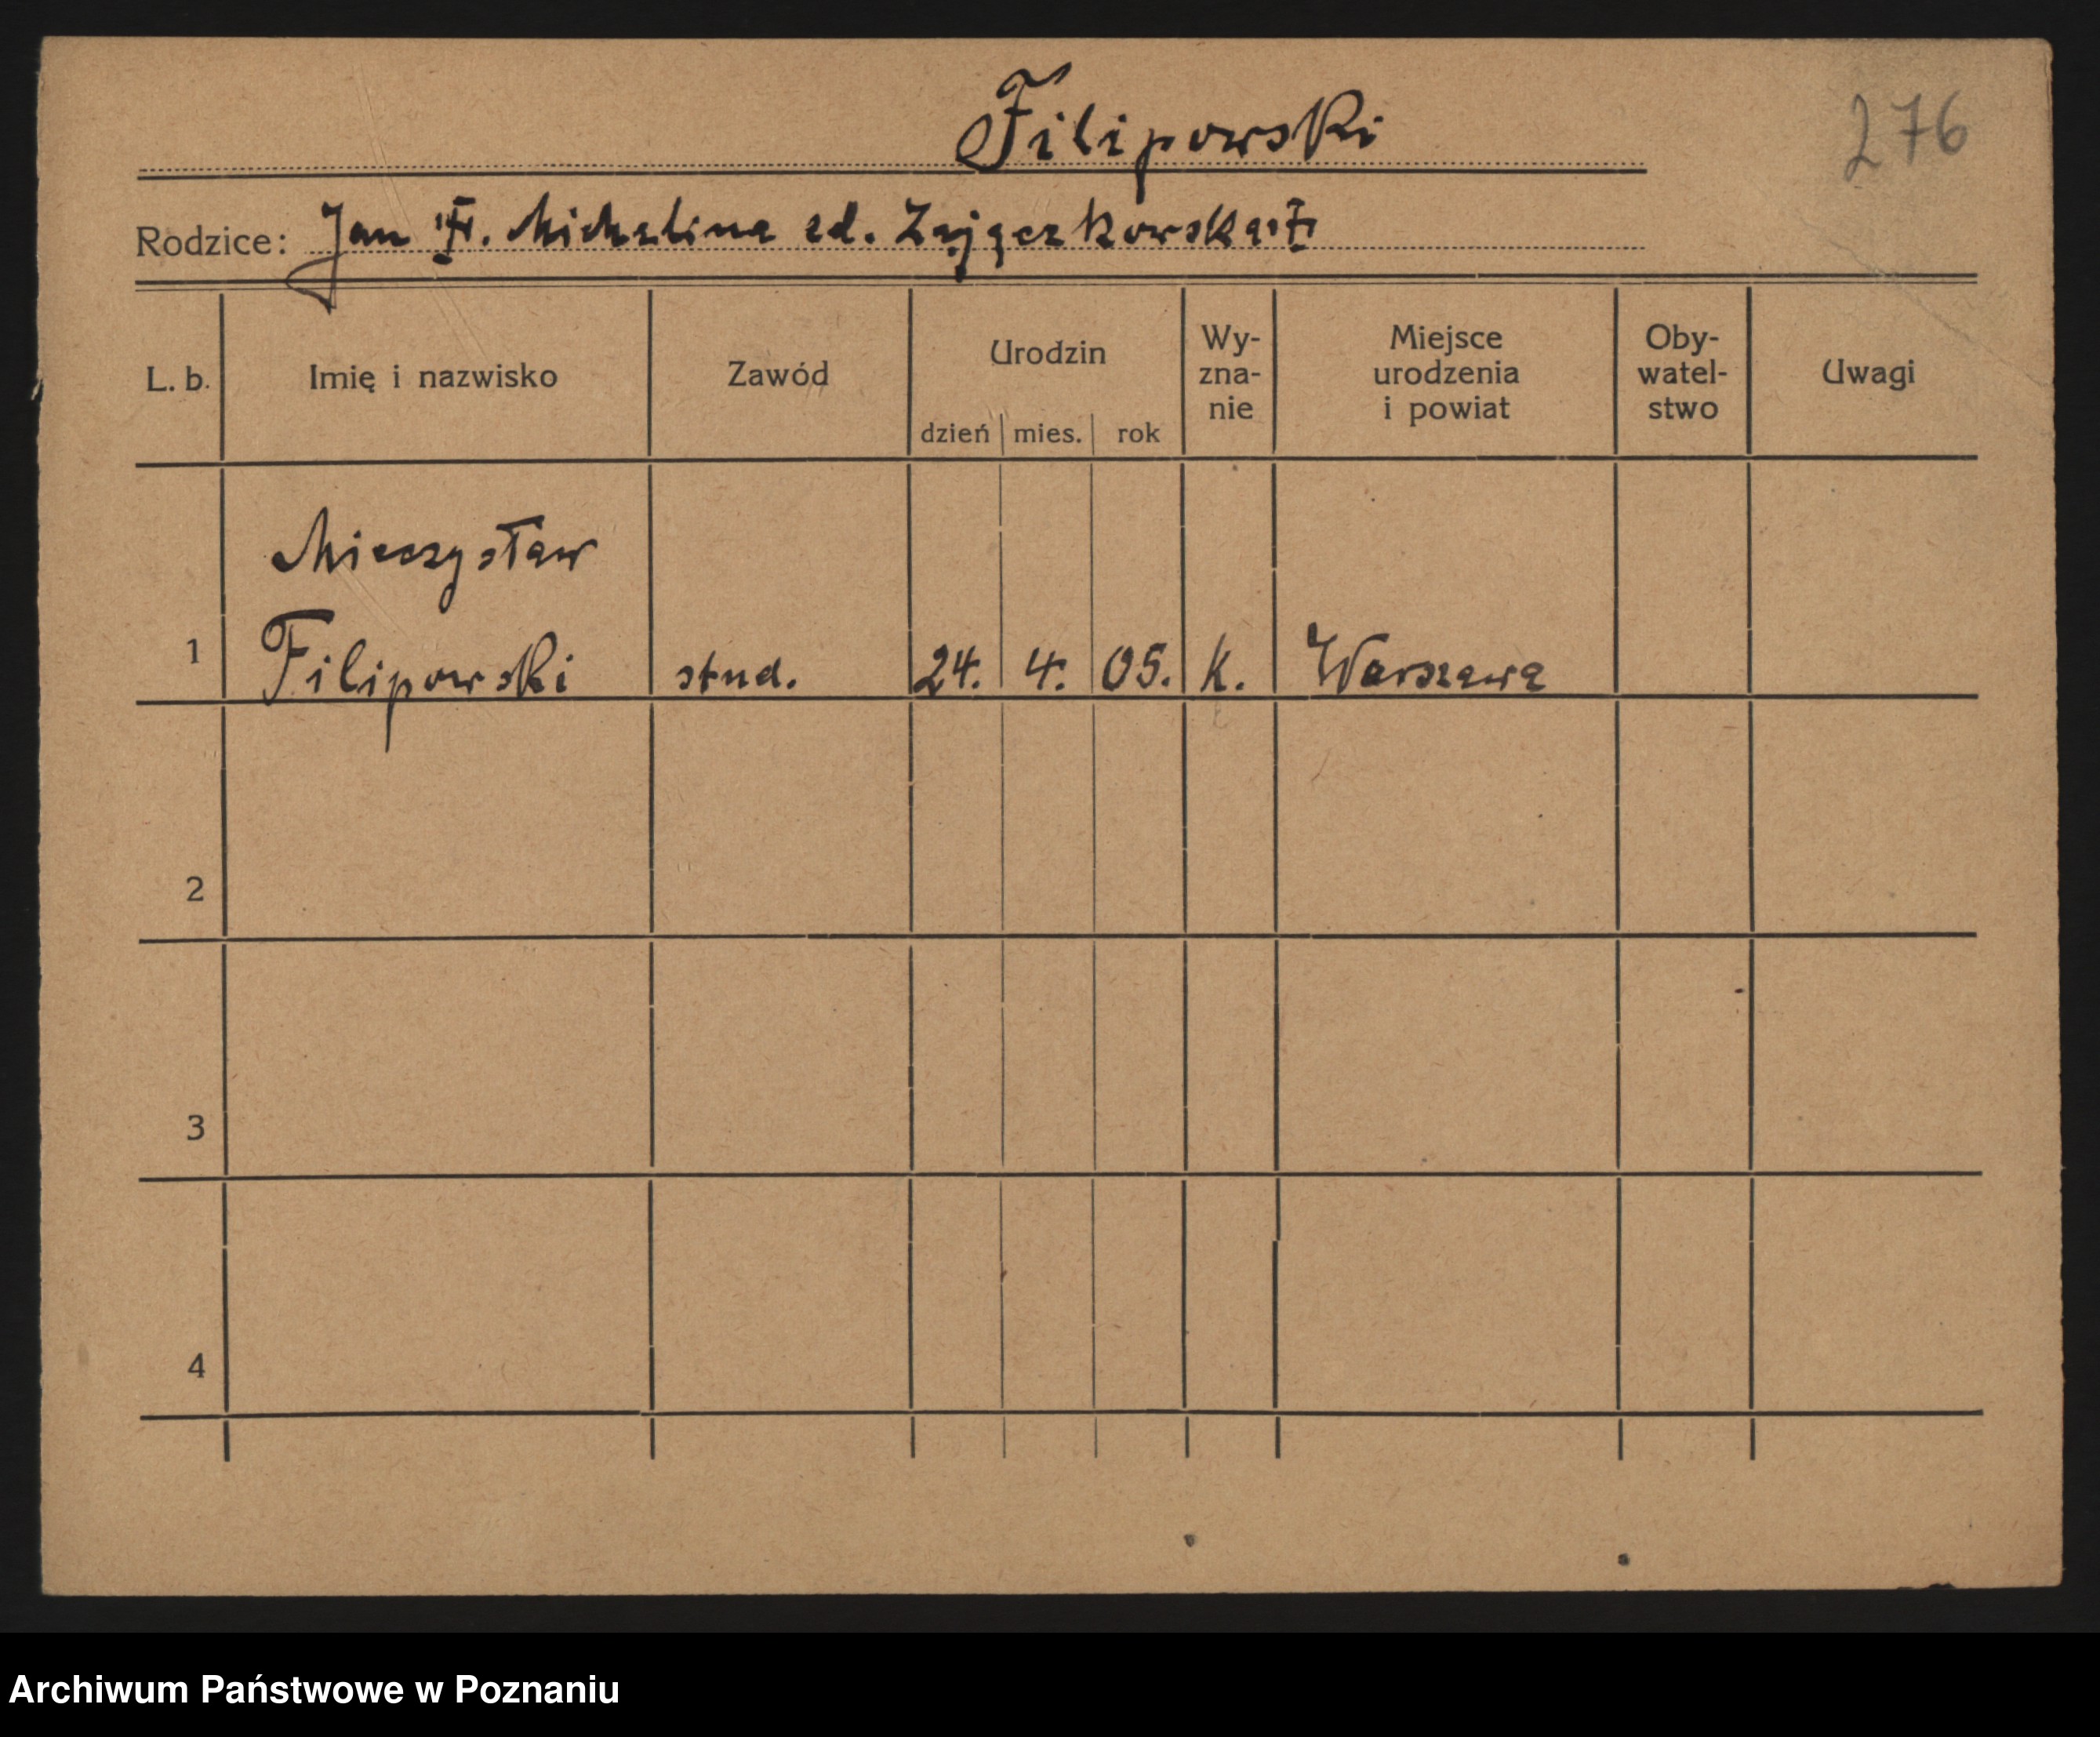 Filipowski
276
Rodzice: Jan F. Michalina zd. Zajączkowska
L. b.
Imię i nazwisko
Zawód
Urodzin
dzień mies. rok
Wy-
zna-
nie
Miejsce
urodzenia
i powiat
Oby-
watel-
stwo
Uwagi
Mieczysław
1 Filipowski stud. 24. 4. 05. k. Warszawa
2
3
4
Archiwum Państwowe w Poznaniu